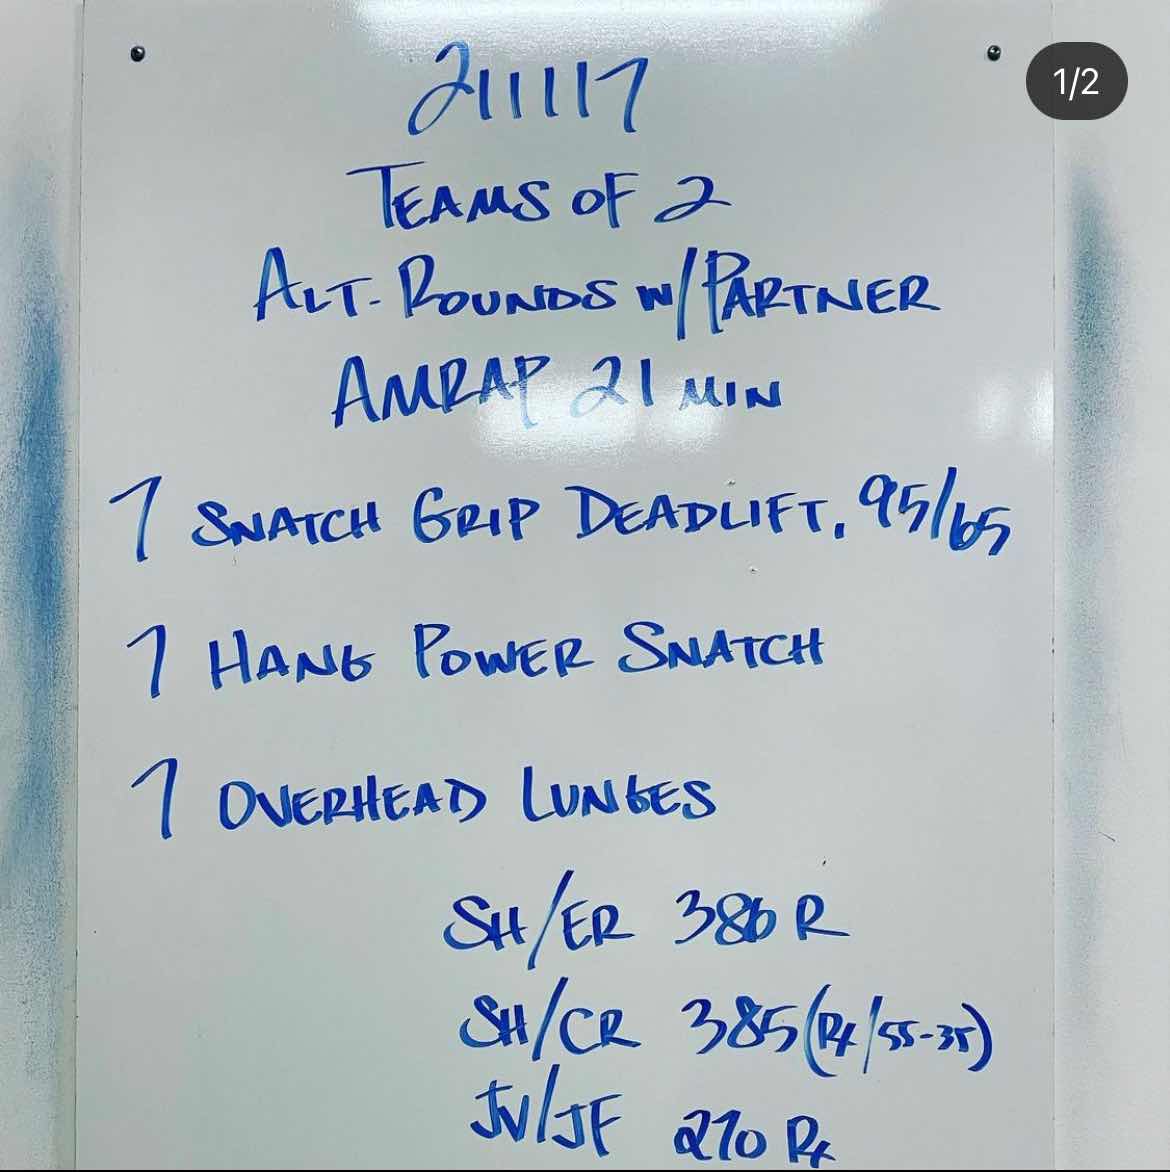 211117
1/2
TEAMS OF 2
ALT. ROUNDS W/PARTNER
AMRAP 21 MIN
7 SNATCH GRIP DEADLIFT, 95/65
7 HANG POWER SNATCH
7 OVERHEAD LUNGES
SH/ER 386 R
SH/CR 385 (RX/55-35)
JV/JF 270 RX